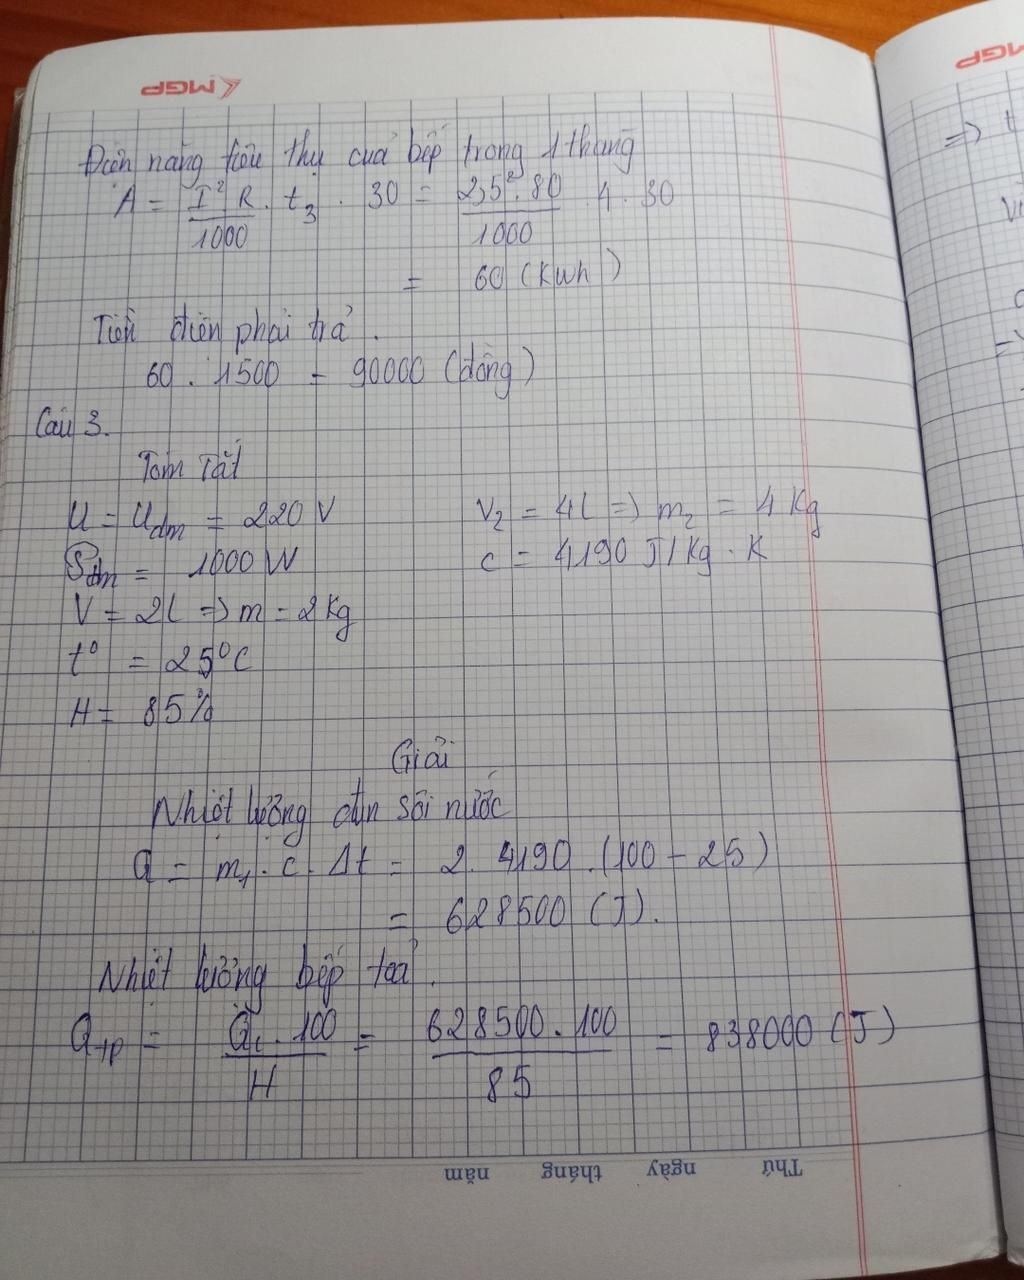 MGP
MGP
Điện năng tiêu thụ của bếp trong 1 tháng
A = I² R / 1000 . t₃ . 30 = 2,5² . 80 / 1000 . 4 . 30
= 60 (Kwh)
Tiền điện phải trả.
60 . 1500 = 90000 (đồng)
Câu 3.
Tóm Tắt
U = Uđm = 220 V
V₂ = 4l => m₂ = 4 Kg
Pđm = 1000 W
c = 4190 J/Kg . K
V = 2l => m = 2 Kg
t⁰ = 25⁰C
H = 85%
Giải
Nhiệt lượng đun sôi nước
Q = m₁ . c . Δt = 2 . 4190 . (100 - 25)
= 628500 (J).
Nhiệt lượng bếp toả.
Qtp = Qi . 100 / H = 628500 . 100 / 85 = 838000 (J)
Thứ ngày tháng năm
=>